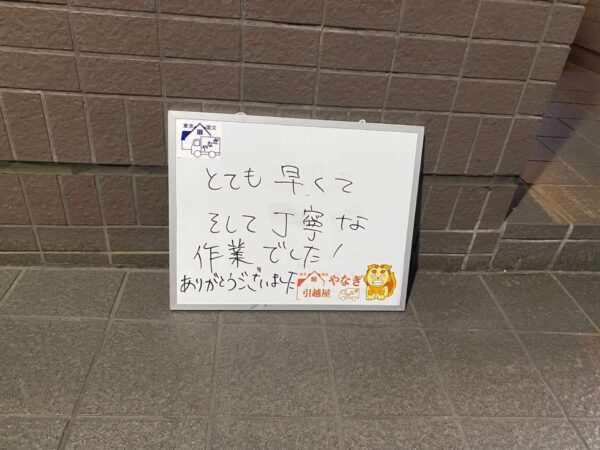 東京 国立
やなぎ
とても 早くて
そして 丁寧な
作業でした!
ありがとうございました
やなぎ
引越屋